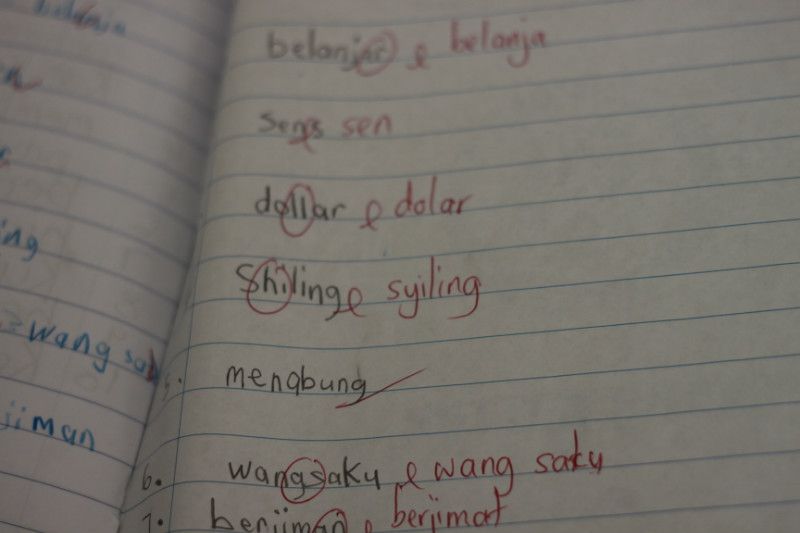 belanjar belanja
sens sen
dollar dolar
Shiling syiling
menqbung
6. wangsaku wang saku
7. berjiman berjimat
ing
wang sak
jiman